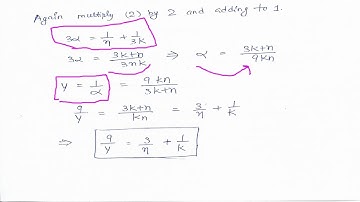 Again multiply (2) by 2 and adding to 1.
3α = 1/η + 1/3k
3α = 3k+η/3ηk ⇒ α = 3k+η/9kη
y = 1/α = 9kη/3k+η
9/y = 3k+η/kη = 3/η + 1/k
⇒ 9/y = 3/η + 1/k